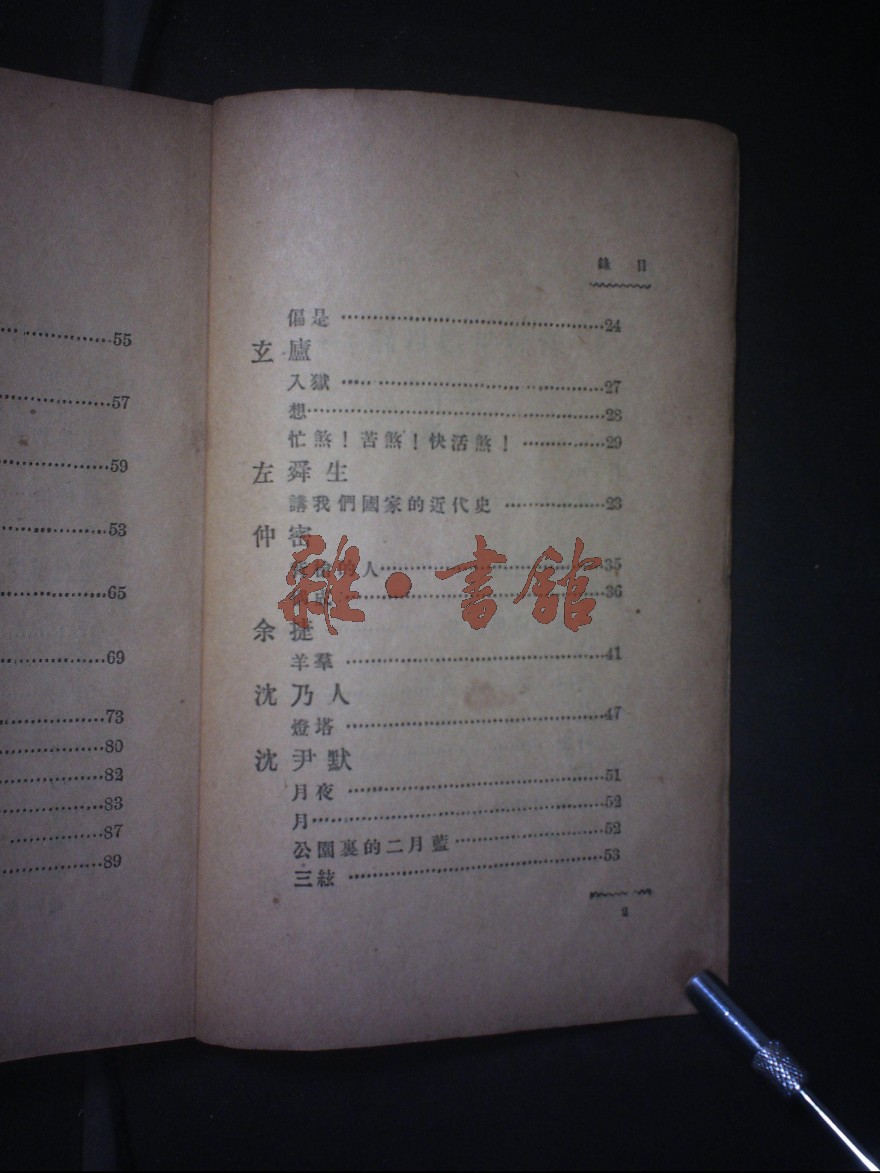 55
57
59
53
65
69
73
80
82
83
87
89
錄 目
偏是 24
玄廬
入獄 27
想 28
忙煞！苦煞！快活煞！ 29
左舜生
講我們國家的近代史 23
仲密
的人 35
36
余捷
羊羣 41
沈乃人
燈塔 47
沈尹默
月夜 51
月 52
公園裏的二月藍 52
三絃 53
2
雜·書館